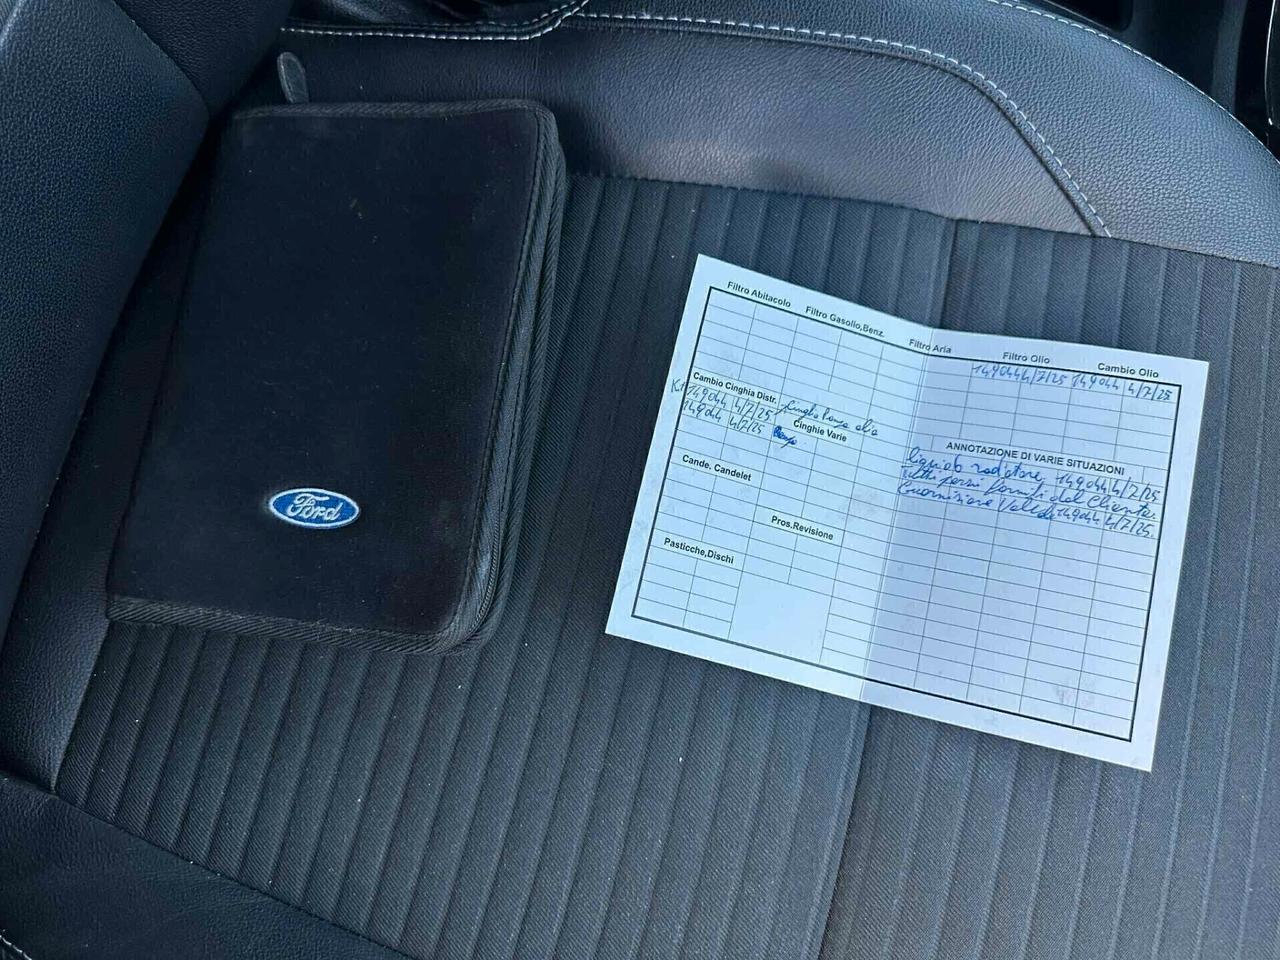 Ford
Filtro Abitacolo Filtro Gasolio,Benz. Filtro Aria Filtro Olio Cambio Olio
149044 4/7/25 149044 4/7/25
Cambio Cinghia Distr.
149044 4/7/25 Cinghia Pompa olio
149044 4/7/25
Cinghie Varie
ANNOTAZIONE DI VARIE SITUAZIONI
liquido radiatore 149044 4/7/25
tutti pezzi forniti dal Cliente.
Guarnizione 149044 4/7/25.
Cande. Candelet
Pros.Revisione
Pasticche,Dischi